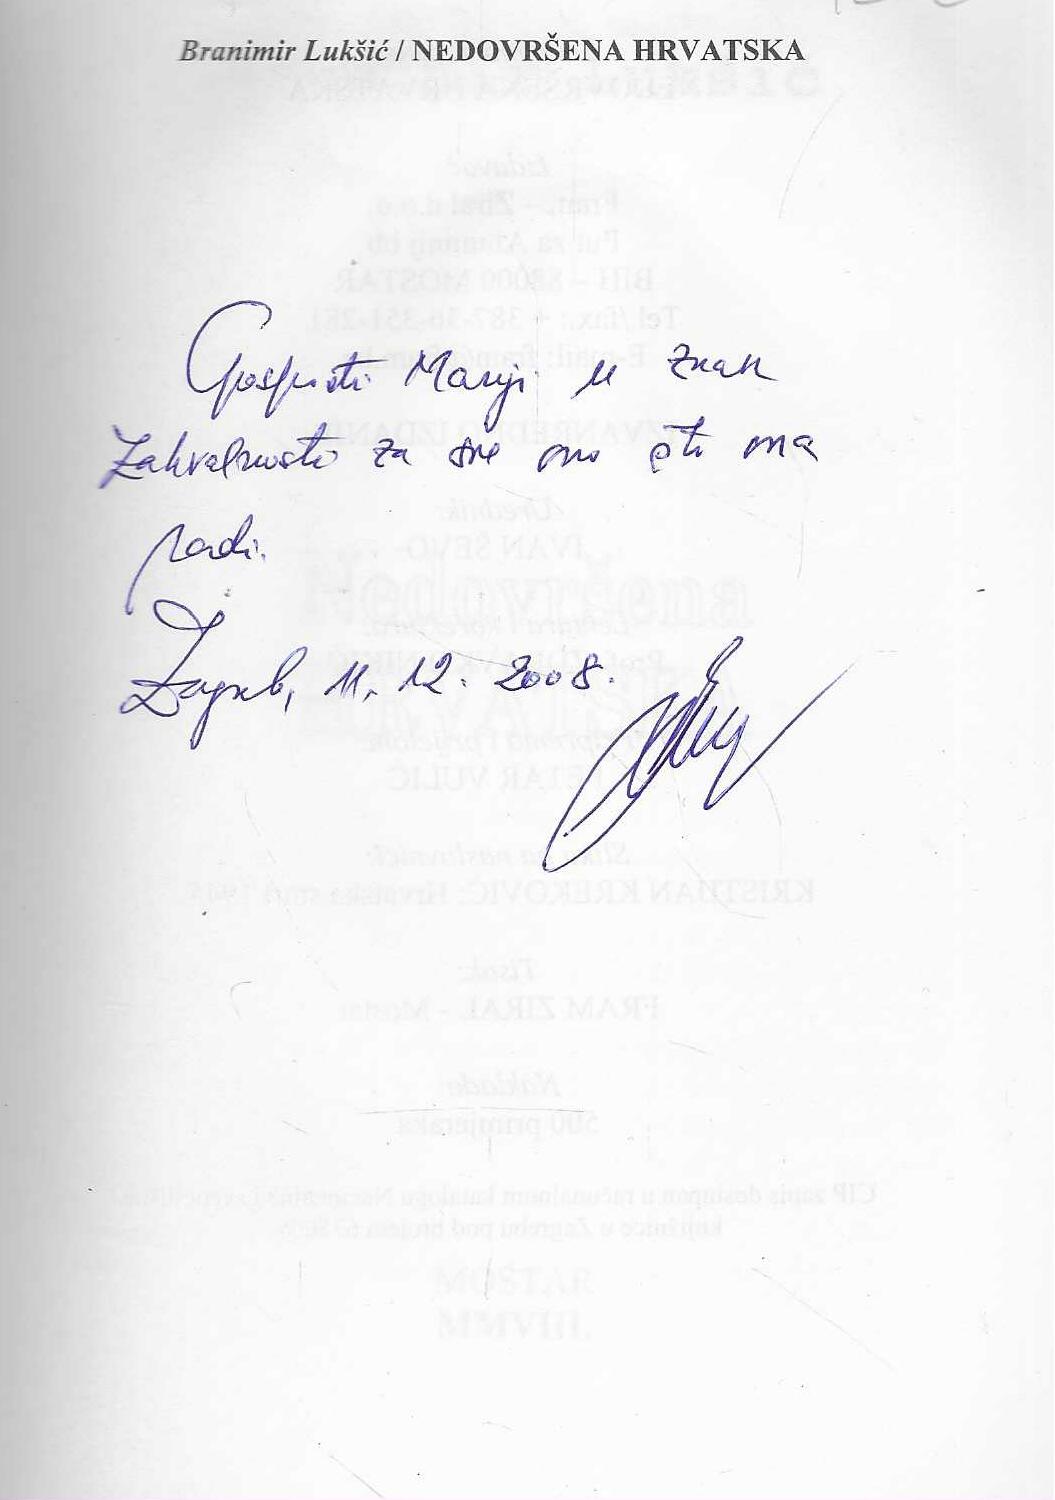 Branimir Lukšić / NEDOVRŠENA HRVATSKA
Gospođi Mariji u znak
zahvalnosti za sve ono što ona
radi.
Zagreb, 11. 12. 2008.